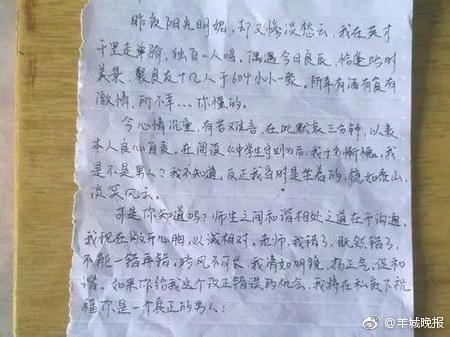 昨夜阳光明媚,却又惨淡愁云,我在英才
千里走单骑,独自一人喝,偶遇今日良辰,恰逢此时
美景,聚良友十几人于604小小一聚。所幸有酒有食有
激情,所不幸…你懂的。
今心情沉重,有苦难言,在此默哀三分钟,以表
本人良心自责。在阅读《中学生守则》后,我十分惭愧,我
是不是男人?我不知道,反正我当时是坐着的,稳如泰山,
淡笑风云。
可是你知道吗?师生之间和谐相处之道在于沟通,
我现在敞开心胸,以诚相对,老师,我错了,既然错了,
不能一错再错,此风不可长,我清如明镜,扬正气,促和
谐。如果你给我这个改正错误的机会,我将在私底下祝
福你是一个真正的男人!
@羊城晚报